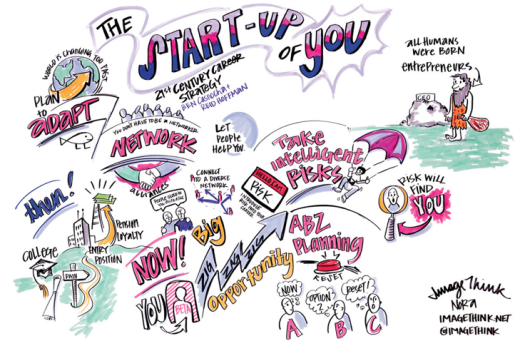 THE
START-UP
OF YOU
21st CENTURY CAREER
STRATEGY
BEN CASNOCHA /
REID HOFFMAN
all HUMANS
WERE BORN
entrepreneurs
CEO
WORLD IS CHANGING TOO FAST
PLAN
to
adapt
YOU DON'T HAVE TO BE A NETWORKER
NETWORK
alliances
LET
PEOPLE
HELP YOU
CONNECT
TO A DIVERSE
NETWORK
Take
intelligent
Risks
HELLO I AM
RISK
RISK WILL
FIND
YOU
then!
COLLEGE
PENSION
LOYALTY
ENTRY
POSITION
NOW!
YOU
BETA
Big
opportunity
ZIG
ZAG
ZIG
ABZ
Planning
RESET
NOW
OPTION
Reset!
A
B
C
ImageThink
NORA
IMAGETHINK.NET
@IMAGETHINK